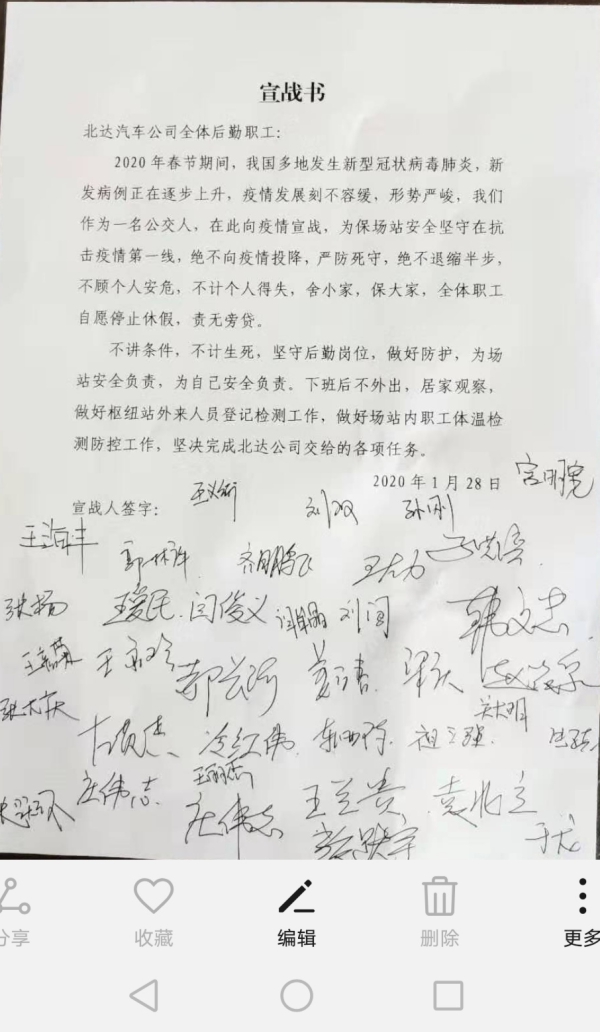 宣战书
北达汽车公司全体后勤职工：
2020年春节期间，我国多地发生新型冠状病毒肺炎，新
发病例正在逐步上升，疫情发展刻不容缓，形势严峻，我们
作为一名公交人，在此向疫情宣战，为保场站安全坚守在抗
击疫情第一线，绝不向疫情投降，严防死守，绝不退缩半步，
不顾个人安危，不计个人得失，舍小家，保大家，全体职工
自愿停止休假，责无旁贷。
不讲条件，不计生死，坚守后勤岗位，做好防护，为场
站安全负责，为自己安全负责。下班后不外出，居家观察，
做好枢纽站外来人员登记检测工作，做好场站内职工体温检
测防控工作，坚决完成北达公司交给的各项任务。
2020年1月28日
宣战人签字：
刘双 孙刚
王海丰 齐鹏飞 王大力
张扬 王爱民 闫俊义 刘闯 韩文忠
冷红伟
庄伟志 王兰贵 袁北立
庄伟志 于龙
分享 收藏 编辑 删除 更多